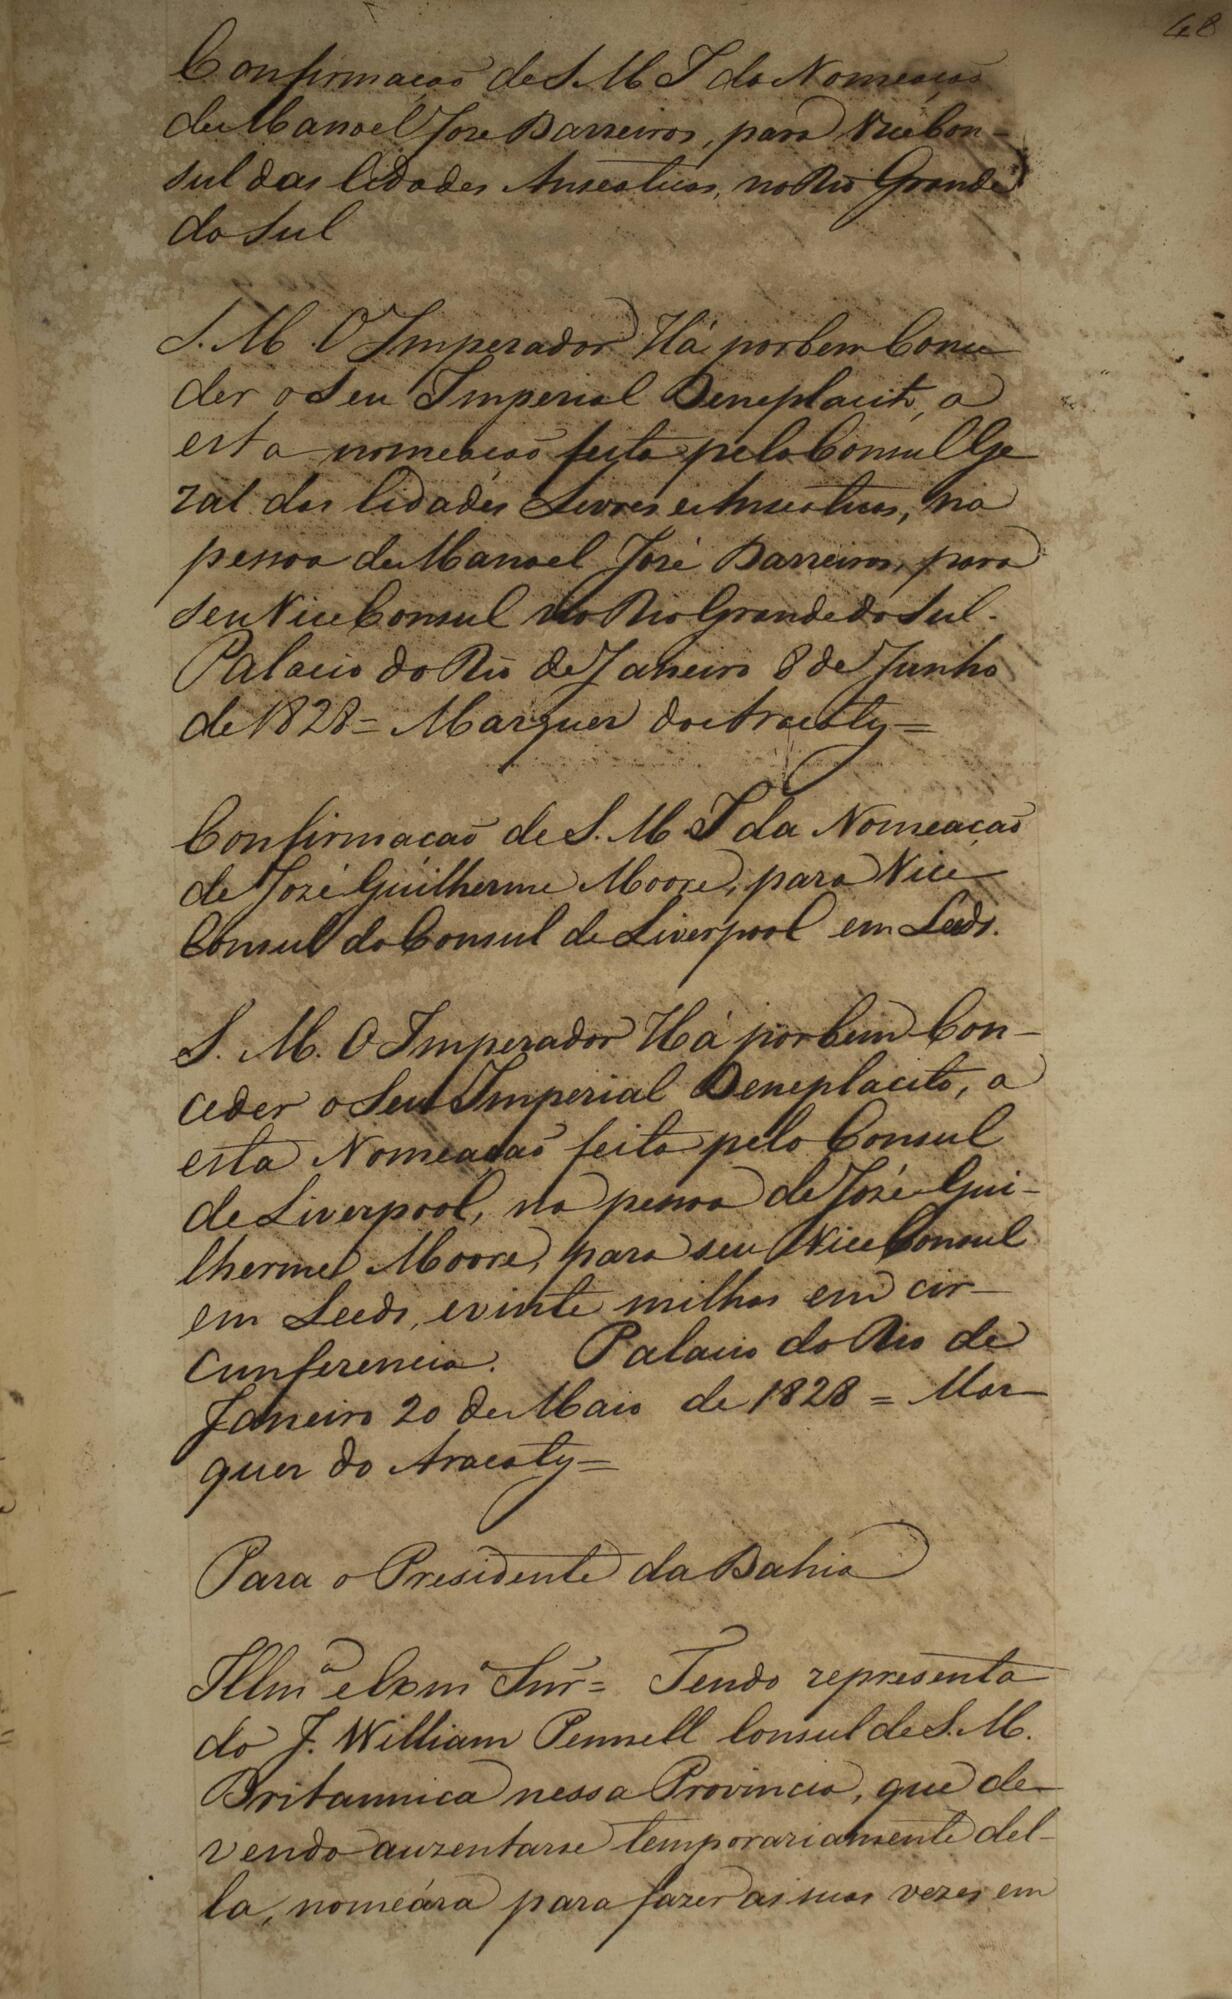 48
Confirmação de S. M. I da Nomeação
de Manoel José Barreiros, para Vice Con-
sul das Cidades Anseaticas, no Rio Grande
do Sul
S. M. O Imperador Há por bem Conce
der o Seu Imperial Beneplacito, a
esta nomeação feita pelo Consul Ge
ral das Cidades Livres e Anseaticas, na
pessoa de Manoel José Barreiros, para
seu Vice Consul no Rio Grande do Sul.
Palacio do Rio de Janeiro 8 de Junho
de 1828 = Marquez do Aracaty =
Confirmação de S. M. I da Nomeação
de José Guilherme Moore, para Vice
Consul do Consul de Liverpool em Leeds.
S. M. O Imperador Há por bem Con-
ceder o Seu Imperial Beneplacito, a
esta Nomeação feita pelo Consul
de Liverpool, na pessoa de José Gui-
lherme Moore, para seu Vice Consul
em Leeds, e vinte milhas em cir-
cunferencia. Palacio do Rio de
Janeiro 20 de Maio de 1828 = Mar
quez do Aracaty =
Para o Presidente da Bahia
Illmº e Exmº Snr = Tendo representa
do J. William Pennell Consul de S. M.
Britannica nessa Provincia, que de
vendo auzentarse temporariamente del-
la, nomeára para fazer as suas vezes em